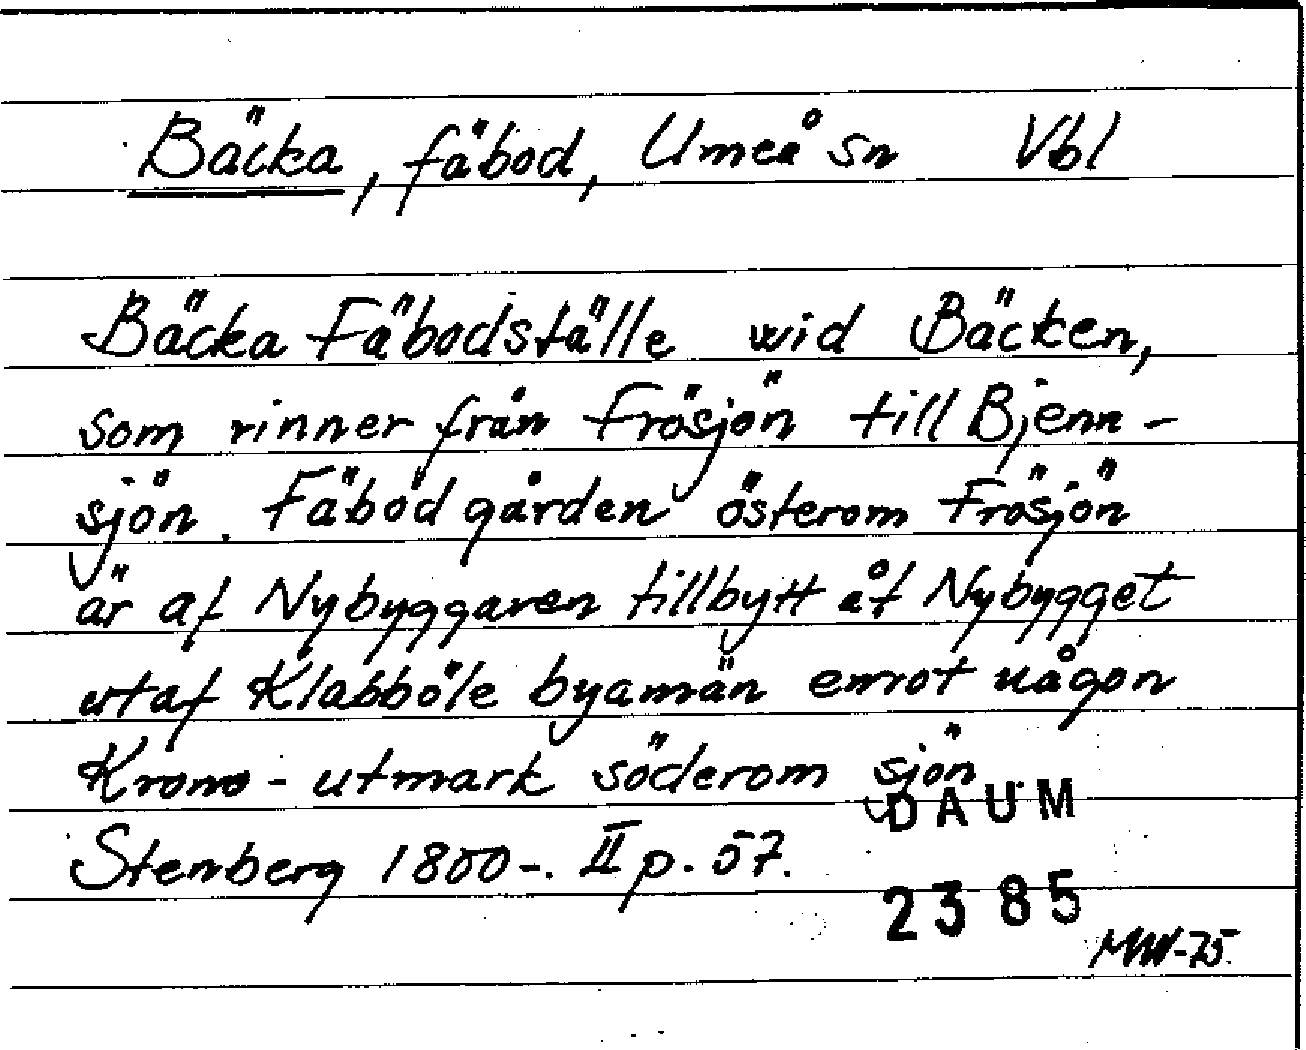 Bäcka, fäbod, Umeå sn Vbl
Bäcka Fäbodställe wid Bäcken,
som rinner från Frösjön till Bjenn-
sjön. Fäbodgården österom Frösjön
är af Nybyggaren tillbytt åt Nybygget
utaf Klabböle byamän emot någon
Krono-utmark söderom sjön
Stenberg 1800-. II p. 57.
DAUM
2385
MW-75.